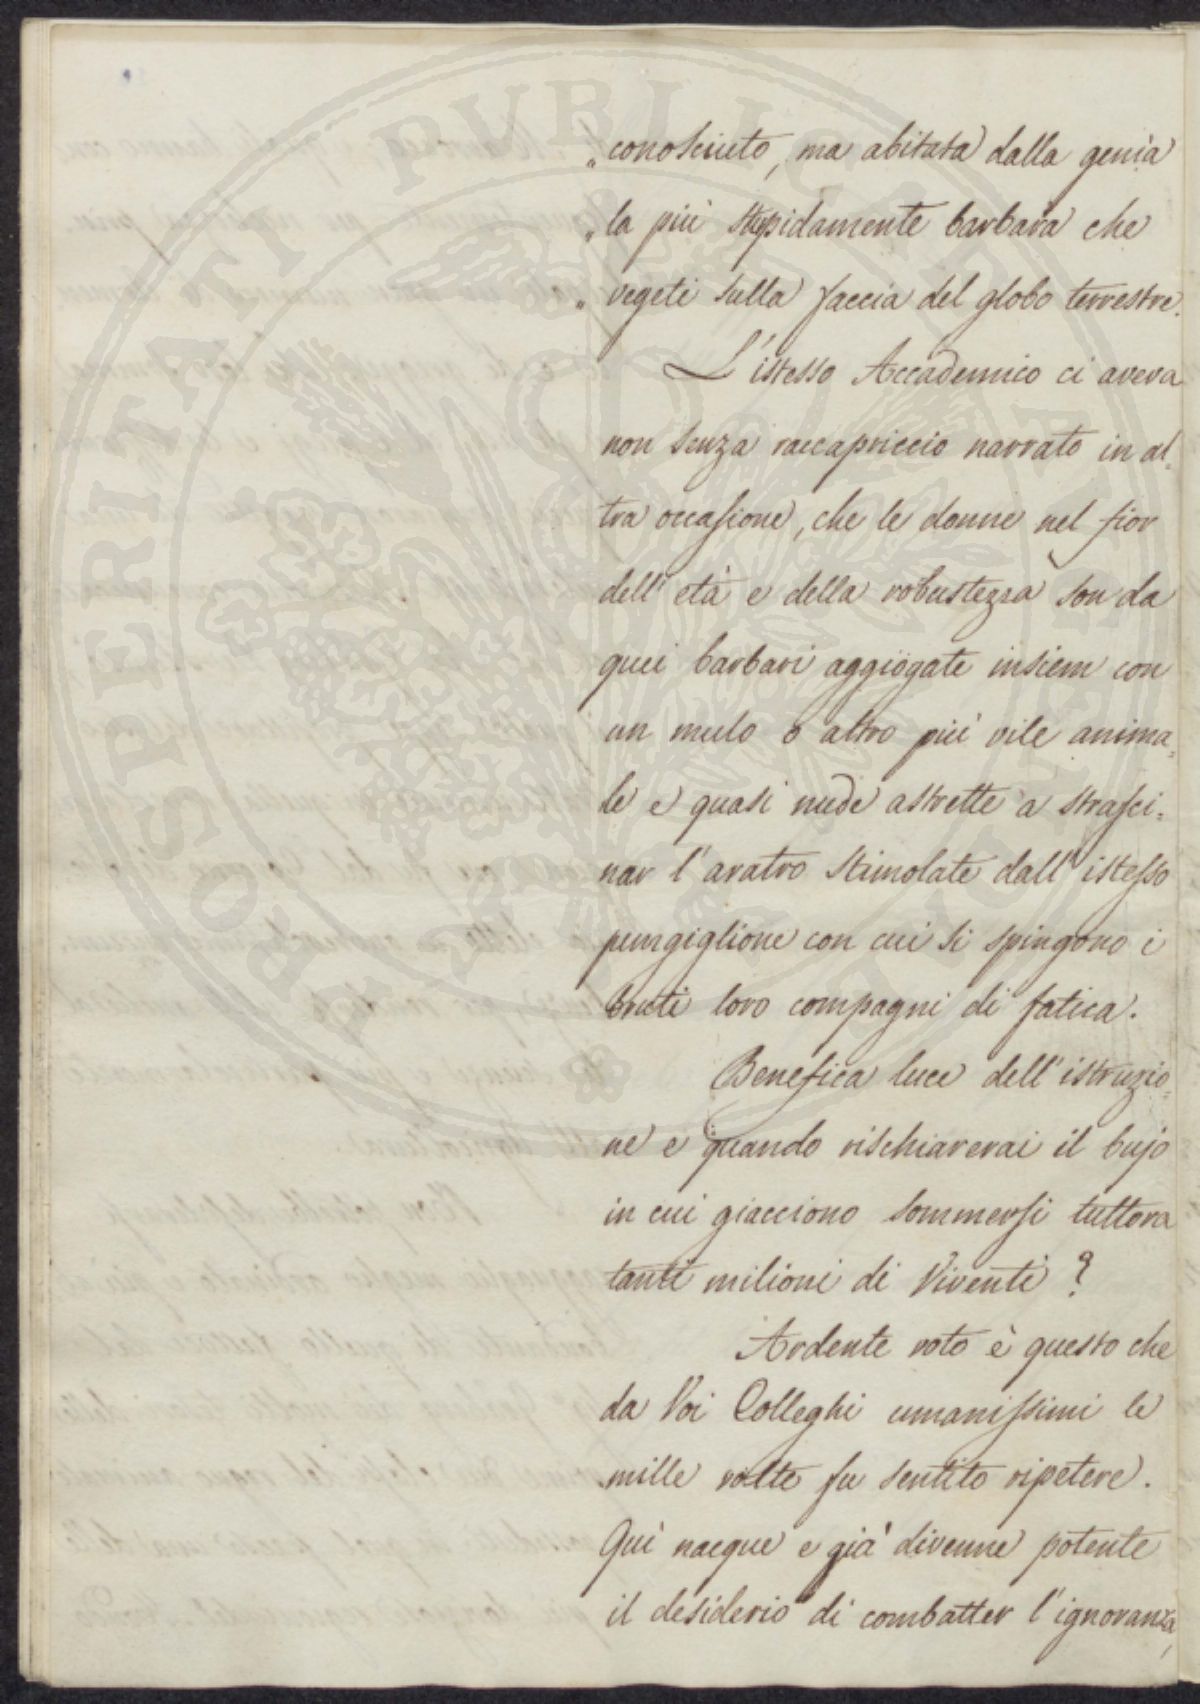 „ conosciuto, ma abitata dalla genìa
„ la più stupidamente barbara che
„ vegeti sulla faccia del globo terrestre.
L'istesso Accademico ci aveva
non senza raccapriccio narrato in al-
tra occasione, che le donne nel fior
dell'età e della robustezza son da
quei barbari aggiogate insiem con
un mulo o altro più vile anima-
le e quasi nude astrette a strasci-
nar l'aratro stimolate dall'istesso
pungiglione con cui si spingono i
bruti loro compagni di fatica.
Benefica luce dell'istruzio-
ne e quando rischiarerai il bujo
in cui giacciono sommersi tuttora
tanti milioni di Viventi?
Ardente voto è questo che
da Voi Colleghi umanissimi le
mille volte fu sentito ripetere.
Quì nacque e già divenne potente
il desiderio di combatter l'ignoranza,
PROSPERITATI PUBLICAE AUGENDAE